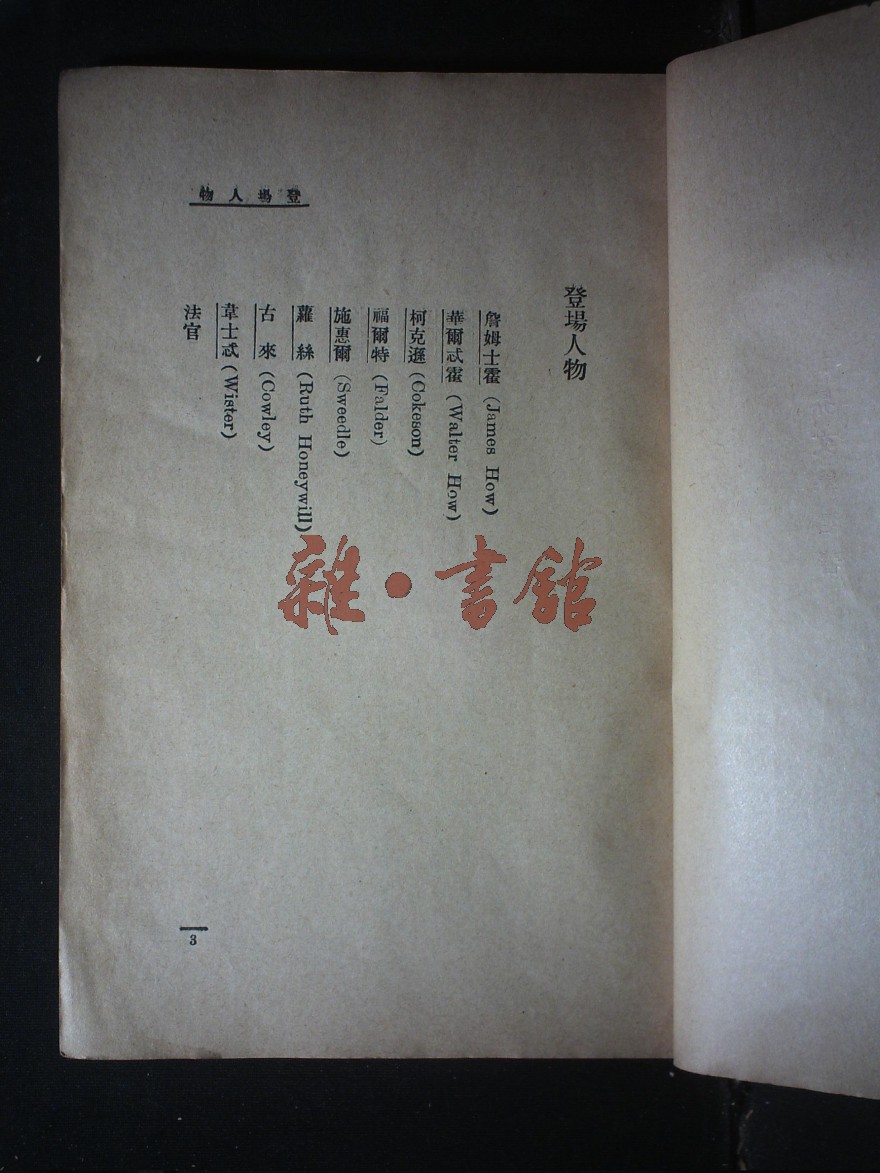 登場人物
登場人物
詹姆士霍 (James How)
華爾忒霍 (Walter How)
柯克遜 (Cokeson)
福爾特 (Falder)
施惠爾 (Sweedle)
蘿絲 (Ruth Honeywill)
古來 (Cowley)
韋士忒 (Wister)
法官
3
雜·書館